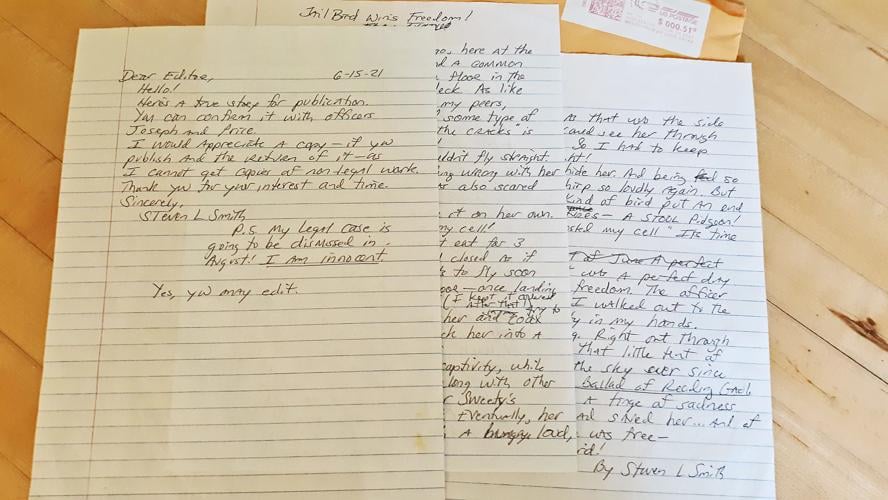 Dear Editor, 6-15-21
Hello!
Here's A true story for publication.
You can confirm it with officers
Joseph and Price.
I would Appreciate A copy—if you
publish And the return of it—as
I cannot get copies of non-legal work.
Thank you for your interest and time.
Sincerely,
Steven L Smith
P.S. My Legal case is
going to be dismissed in
August! I Am innocent.
Yes, you may edit.
Jail Bird Wins Freedom!
here at the
A common
floor in the
eck. As like
my peers,
some type of
the cracks" is
uldn't fly straight.
ing wrong with her
also scared
it on her own.
my cell!
t eat for 3
closed as if
to fly soon
—once landing
(I kept it
After that!) try to
her and coax
ck her into A
captivity, while
long with other
Sweety's
Eventually, her
A hungry loud,
As that was the side
could see her through
So I had to keep
ht!
hide her. And being so
chirp so loudly again. But
kind of bird put An end
— A Stool Pidgeon!
sted my cell "Its time
of June A perfect
was A perfect day
freedom. The officer
I walked out to the
y in my hands.
g. Right out through
that little tent of
the sky ever since
Ballad of Reading Gaol,
A tinge of sadness
Ad saved her... And at
was free—
ird!
By Steven L Smith
US POSTAGE
$ 000.51⁰